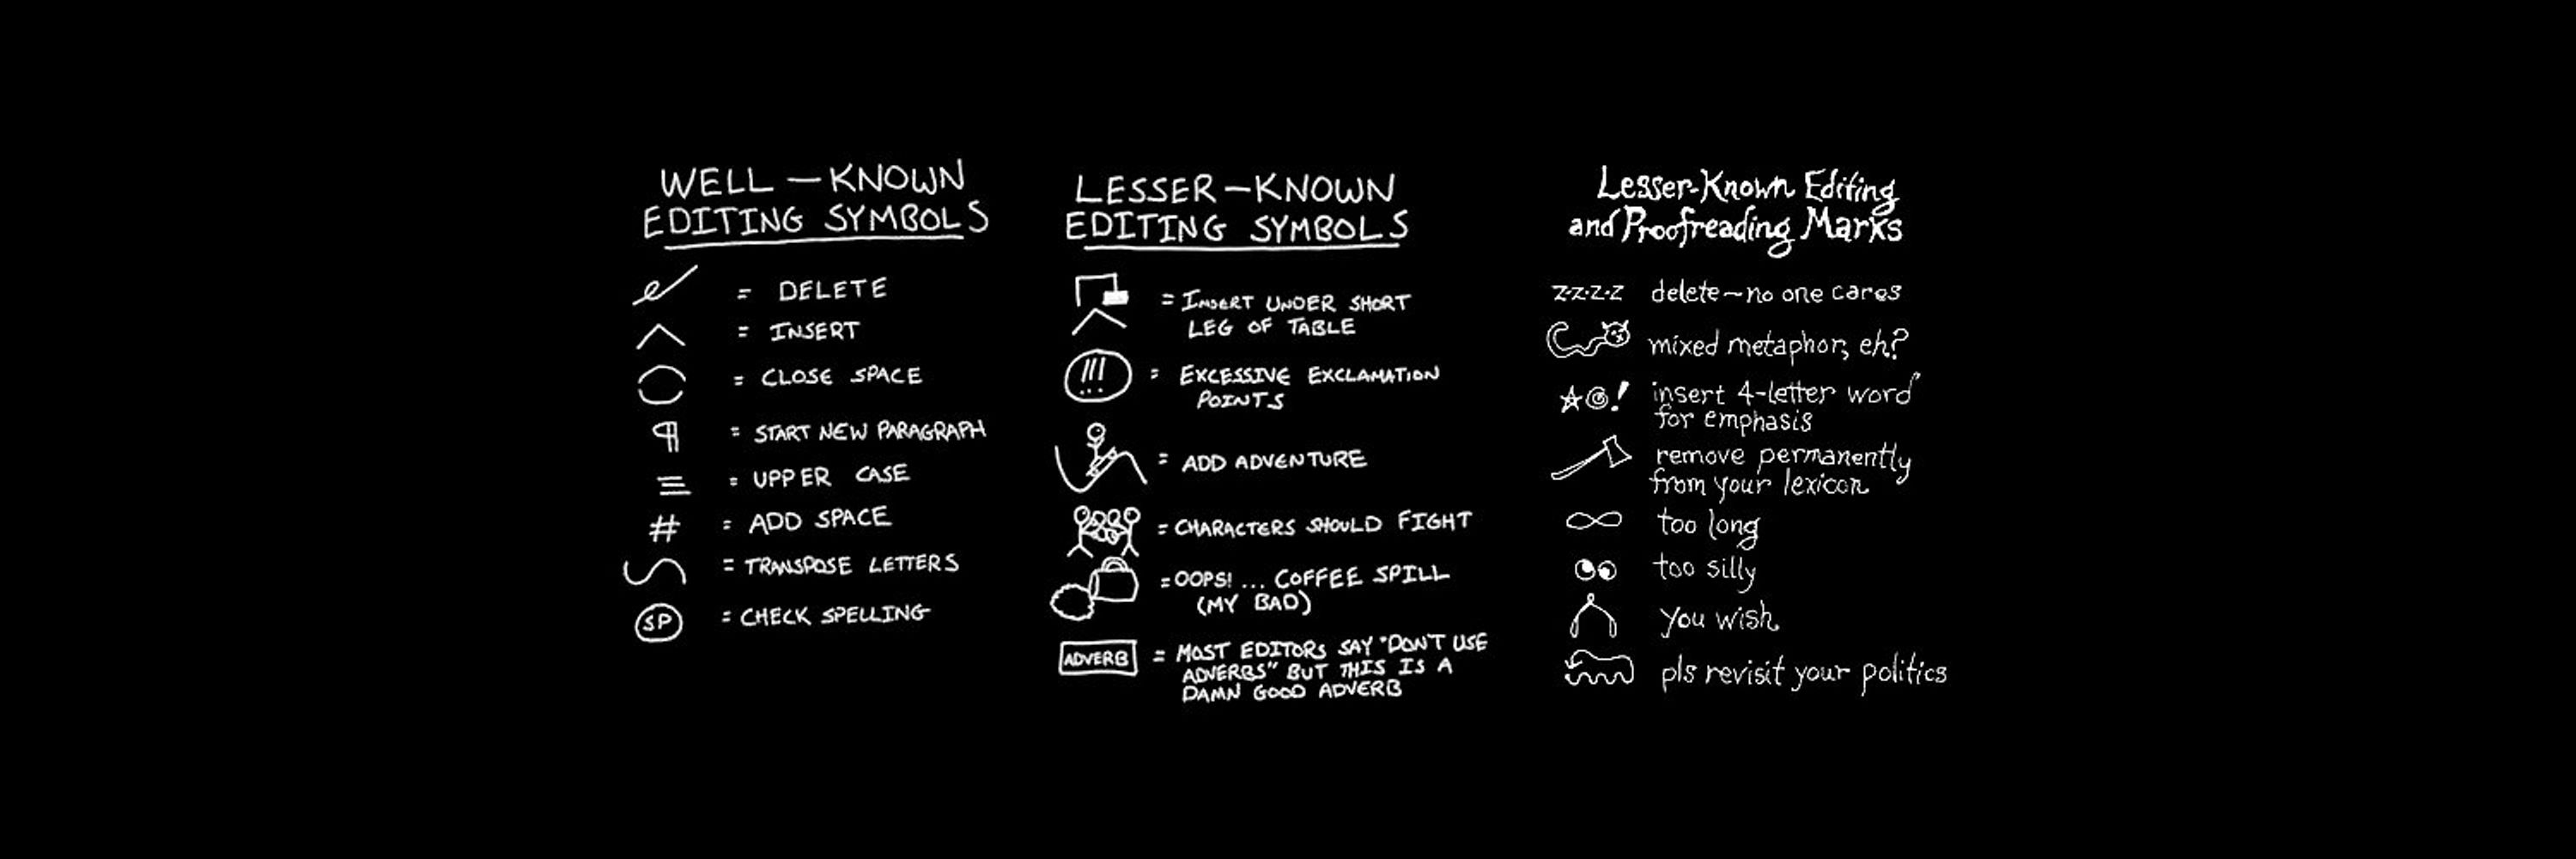 WELL-KNOWN
EDITING SYMBOLS
= DELETE
= INSERT
= CLOSE SPACE
¶ = START NEW PARAGRAPH
= UPPER CASE
# = ADD SPACE
= TRANSPOSE LETTERS
SP = CHECK SPELLING
LESSER-KNOWN
EDITING SYMBOLS
= INSERT UNDER SHORT
LEG OF TABLE
!!! = EXCESSIVE EXCLAMATION
POINTS
= ADD ADVENTURE
= CHARACTERS SHOULD FIGHT
= OOPS! ... COFFEE SPILL
(MY BAD)
ADVERB = MOST EDITORS SAY "DON'T USE
ADVERBS" BUT THIS IS A
DAMN GOOD ADVERB
Lesser-Known Editing
and Proofreading Marks
z-z-z-z delete—no one cares
mixed metaphor, eh?
★@! insert 4-letter word
for emphasis
remove permanently
from your lexicon
∞ too long
too silly
you wish
pls revisit your politics